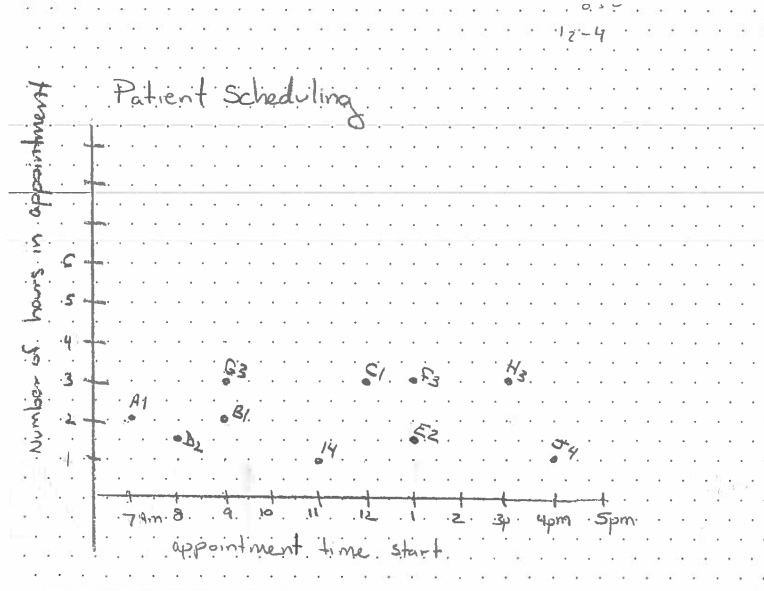 12-4
Patient Scheduling
Number of hours in appointment
6
5
4
3
2
1
G3
C1
F3
H3
A1
B1
D2
E2
I4
J4
7am 8 9 10 11 12 1 2 3p 4pm 5pm
appointment time start